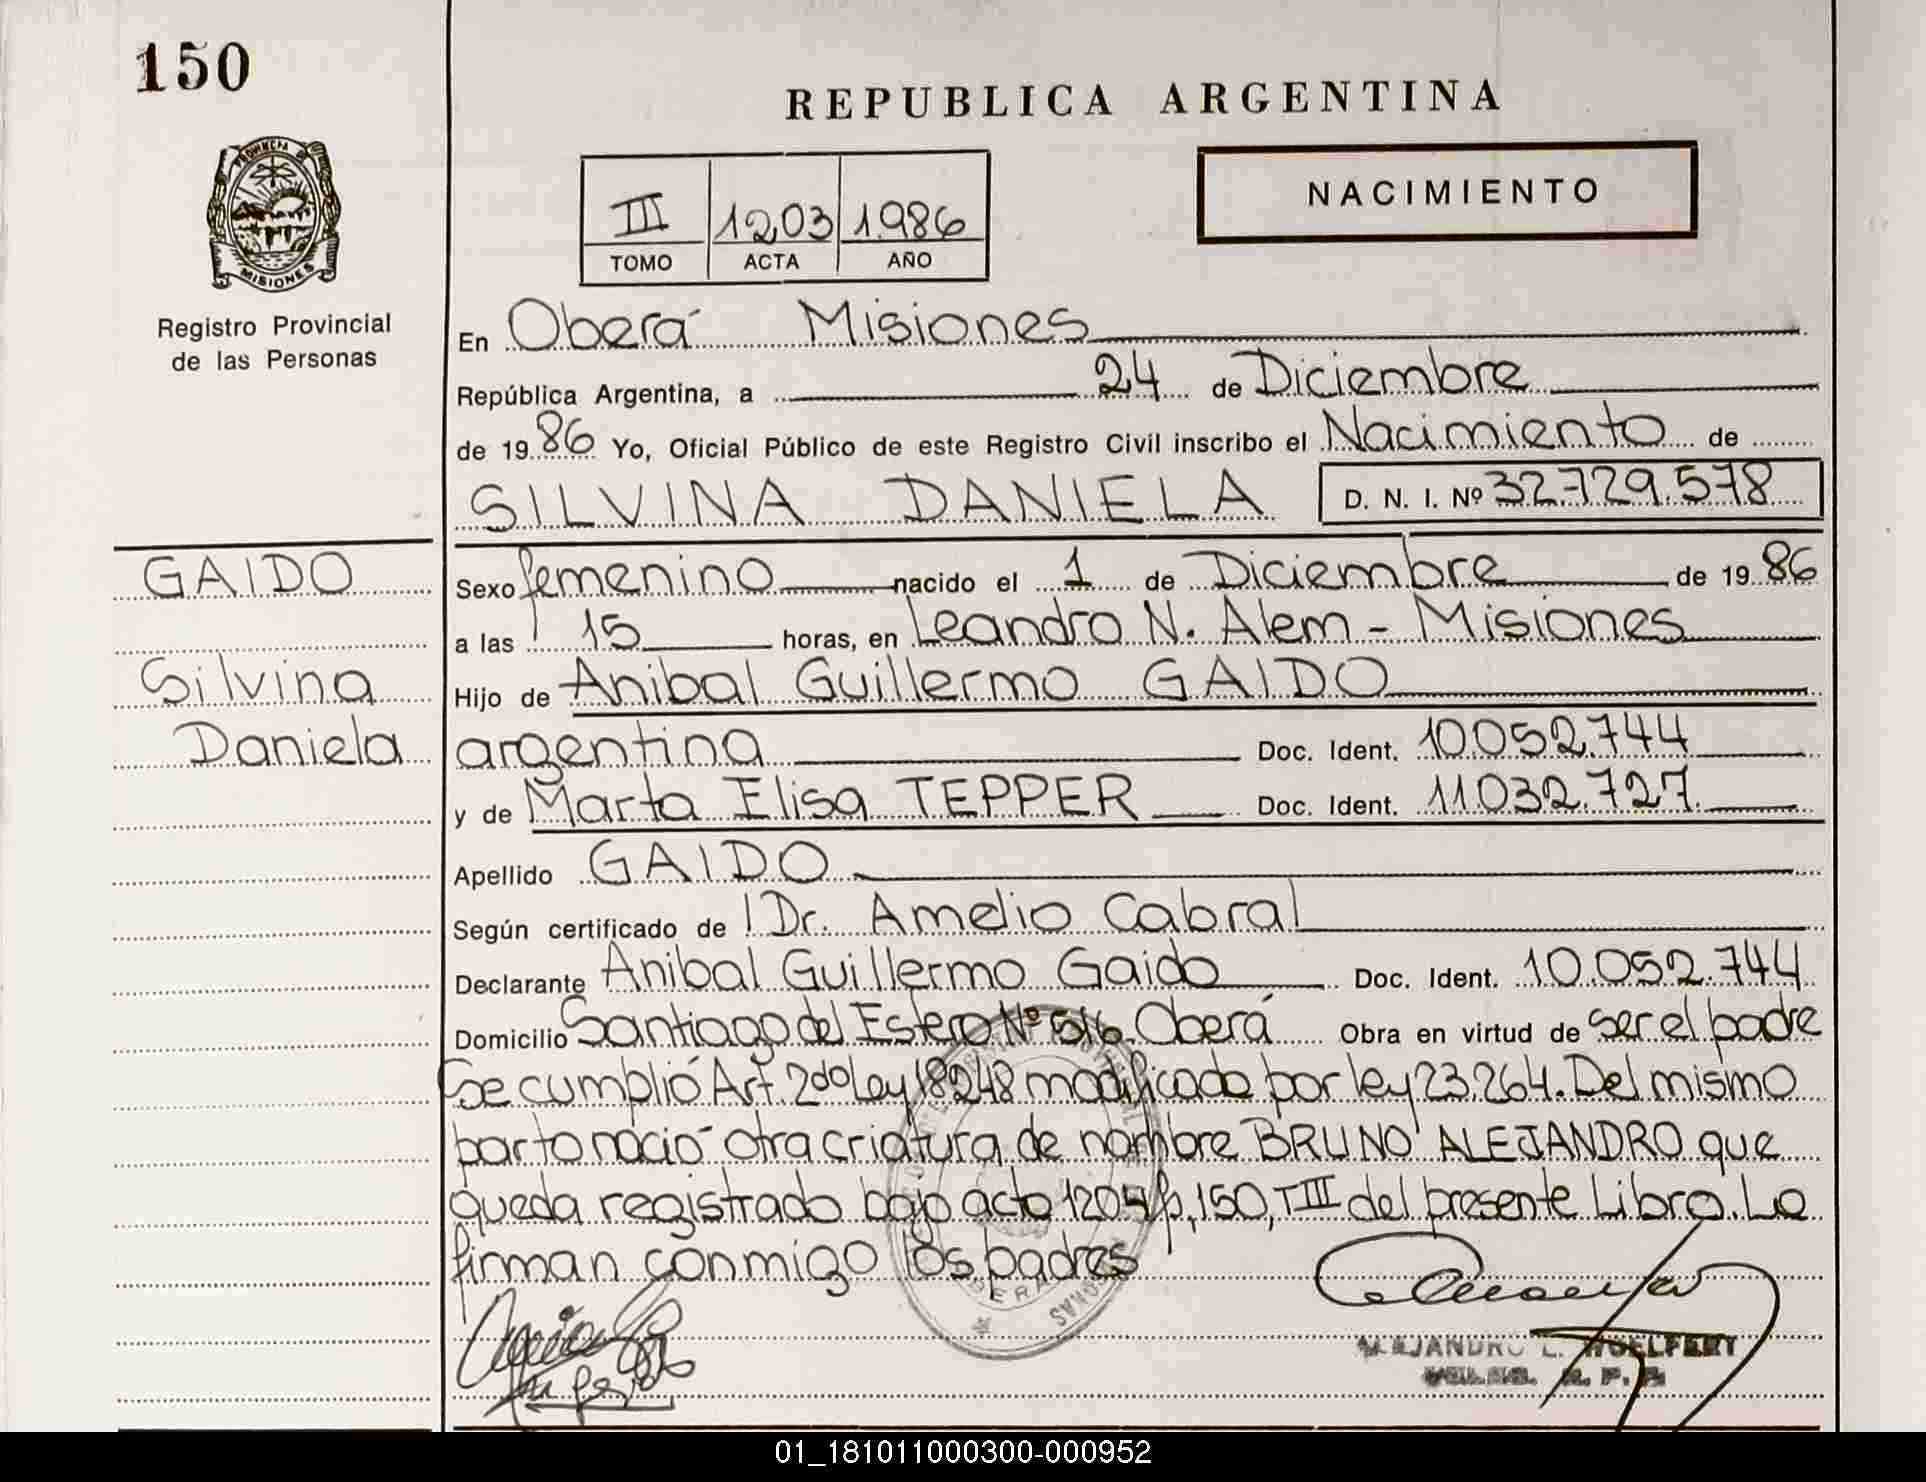 150
REPUBLICA ARGENTINA
PROVINCIA DE
MISIONES
Registro Provincial
de las Personas
III 1203 1986
TOMO ACTA AÑO
NACIMIENTO
En Oberá Misiones
República Argentina, a 24 de Diciembre
de 1986 Yo, Oficial Público de este Registro Civil inscribo el Nacimiento de
SILVINA DANIELA D. N. I. Nº 32.729.578
GAIDO
Silvina
Daniela
Sexo femenino nacido el 1 de Diciembre de 1986
a las 15 horas, en Leandro N. Alem - Misiones
Hijo de Anibal Guillermo GAIDO
argentina Doc. Ident. 10.052.744
y de Marta Elisa TEPPER Doc. Ident. 11.032.727
Apellido GAIDO
Según certificado de Dr. Amelio Cabral
Declarante Anibal Guillermo Gaido Doc. Ident. 10.052.744
Domicilio Santiago del Estero Nº 516 Oberá Obra en virtud de ser el padre
Se cumplió Art. 2do Ley 18248 modificada por ley 23.264. Del mismo
parto nació otra criatura de nombre BRUNO ALEJANDRO que
queda registrado bajo acta 1204, fº, 150, T III del presente Libro. La
firman conmigo los padres
ALEJANDRO L. WOELFERT
01_181011000300-000952